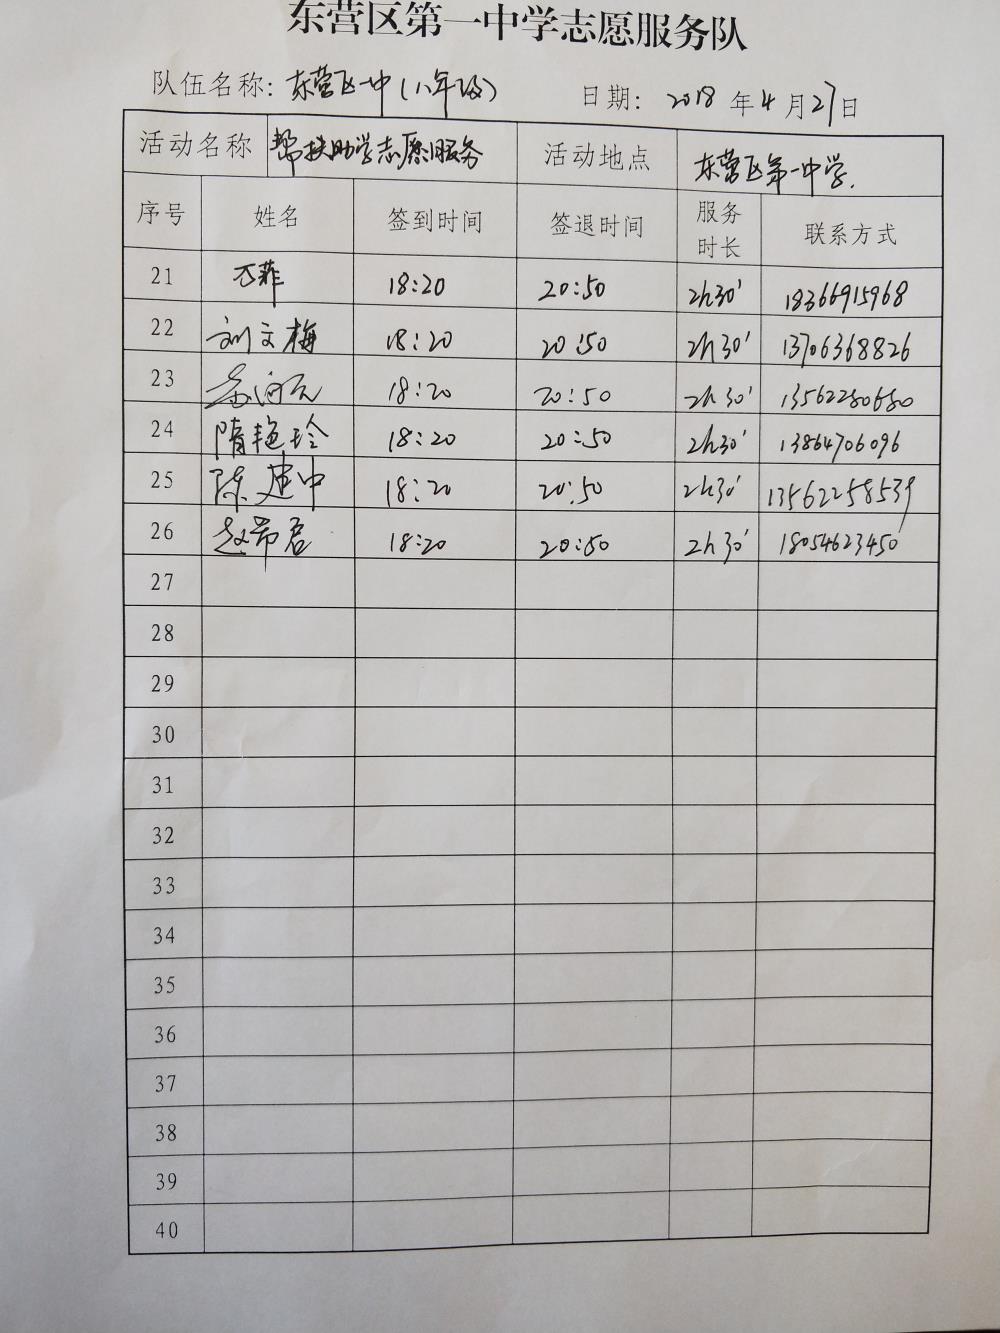 东营区第一中学志愿服务队
队伍名称: 东营区一中(八年级) 日期: 2018 年 4 月 27 日
活动名称 帮扶助学志愿服务 活动地点 东营区第一中学.
序号 姓名 签到时间 签退时间 服务时长 联系方式
21 万菲 18:20 20:50 2h30' 18366915968
22 刘文梅 18:20 20:50 2h30' 13706368826
23 18:20 20:50 2h30' 13562280680
24 隋艳玲 18:20 20:50 2h30' 13864706096
25 陈建中 18:20 20:50 2h30' 13562258539
26 赵常君 18:20 20:50 2h30' 18054623450
27
28
29
30
31
32
33
34
35
36
37
38
39
40